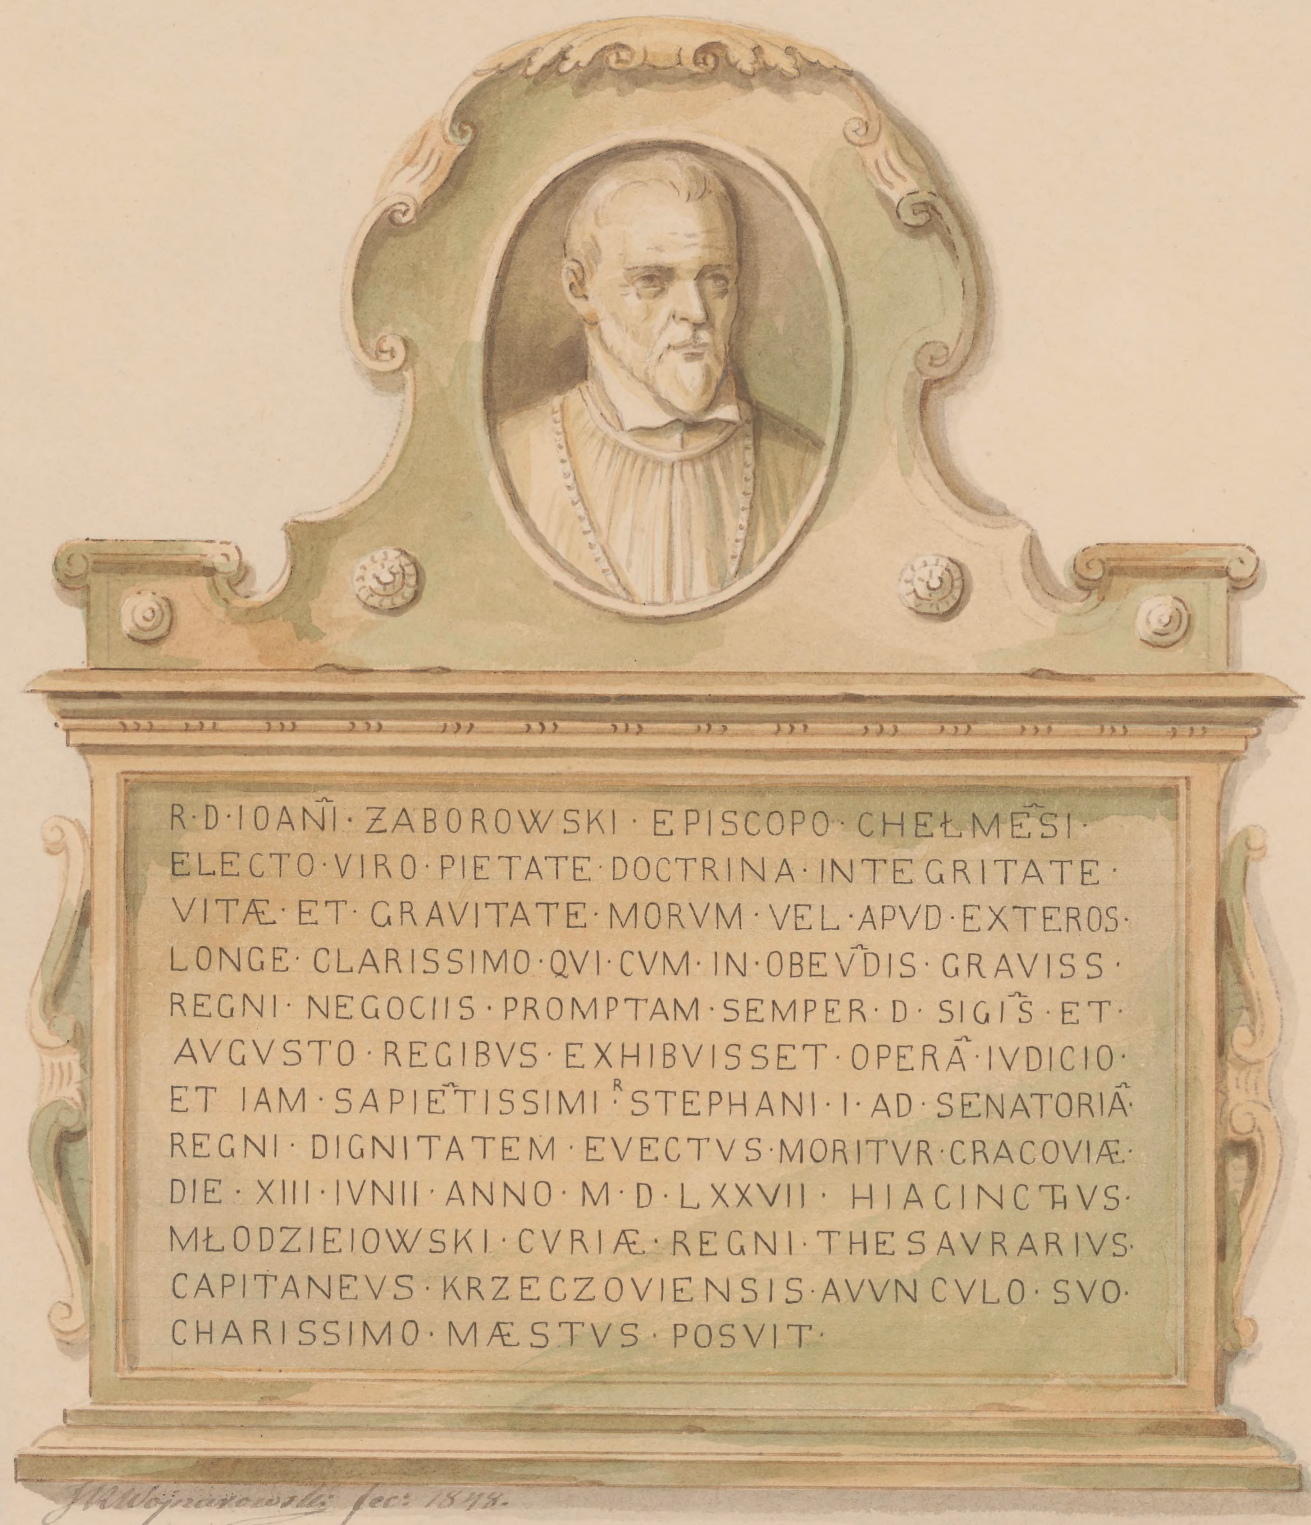 R·D·IOANĨI· ZABOROWSKI · EPISCOPO· CHEŁMẼSI·
ELECTO·VIRO·PIETATE·DOCTRINA·INTEGRITATE·
VITÆ·ET·GRAVITATE·MORVM·VEL·APVD·EXTEROS·
LONGE·CLARISSIMO·QVI·CVM·IN·OBEṼDIS·GRAVISS·
REGNI·NEGOCIIS·PROMPTAM·SEMPER·D·SIGIS̃·ET·
AVGVSTO·REGIBVS·EXHIBVISSET·OPERÃ·IVDICIO·
ET IAM·SAPIẼTISSIMI·R STEPHANI·I·AD·SENATORIÃ·
REGNI·DIGNITATEM·EVECTVS·MORITVR·CRACOVIÆ·
DIE·XIII·IVNII·ANNO·M·D·LXXVII· HIACINCTHVS·
MŁODZIEIOWSKI·CVRIÆ·REGNI·THESAVRARIVS·
CAPITANEVS·KRZECZOVIENSIS·AVVNCVLO·SVO·
CHARISSIMO·MÆSTVS·POSVIT·
JKWojnarowski fec: 1848.